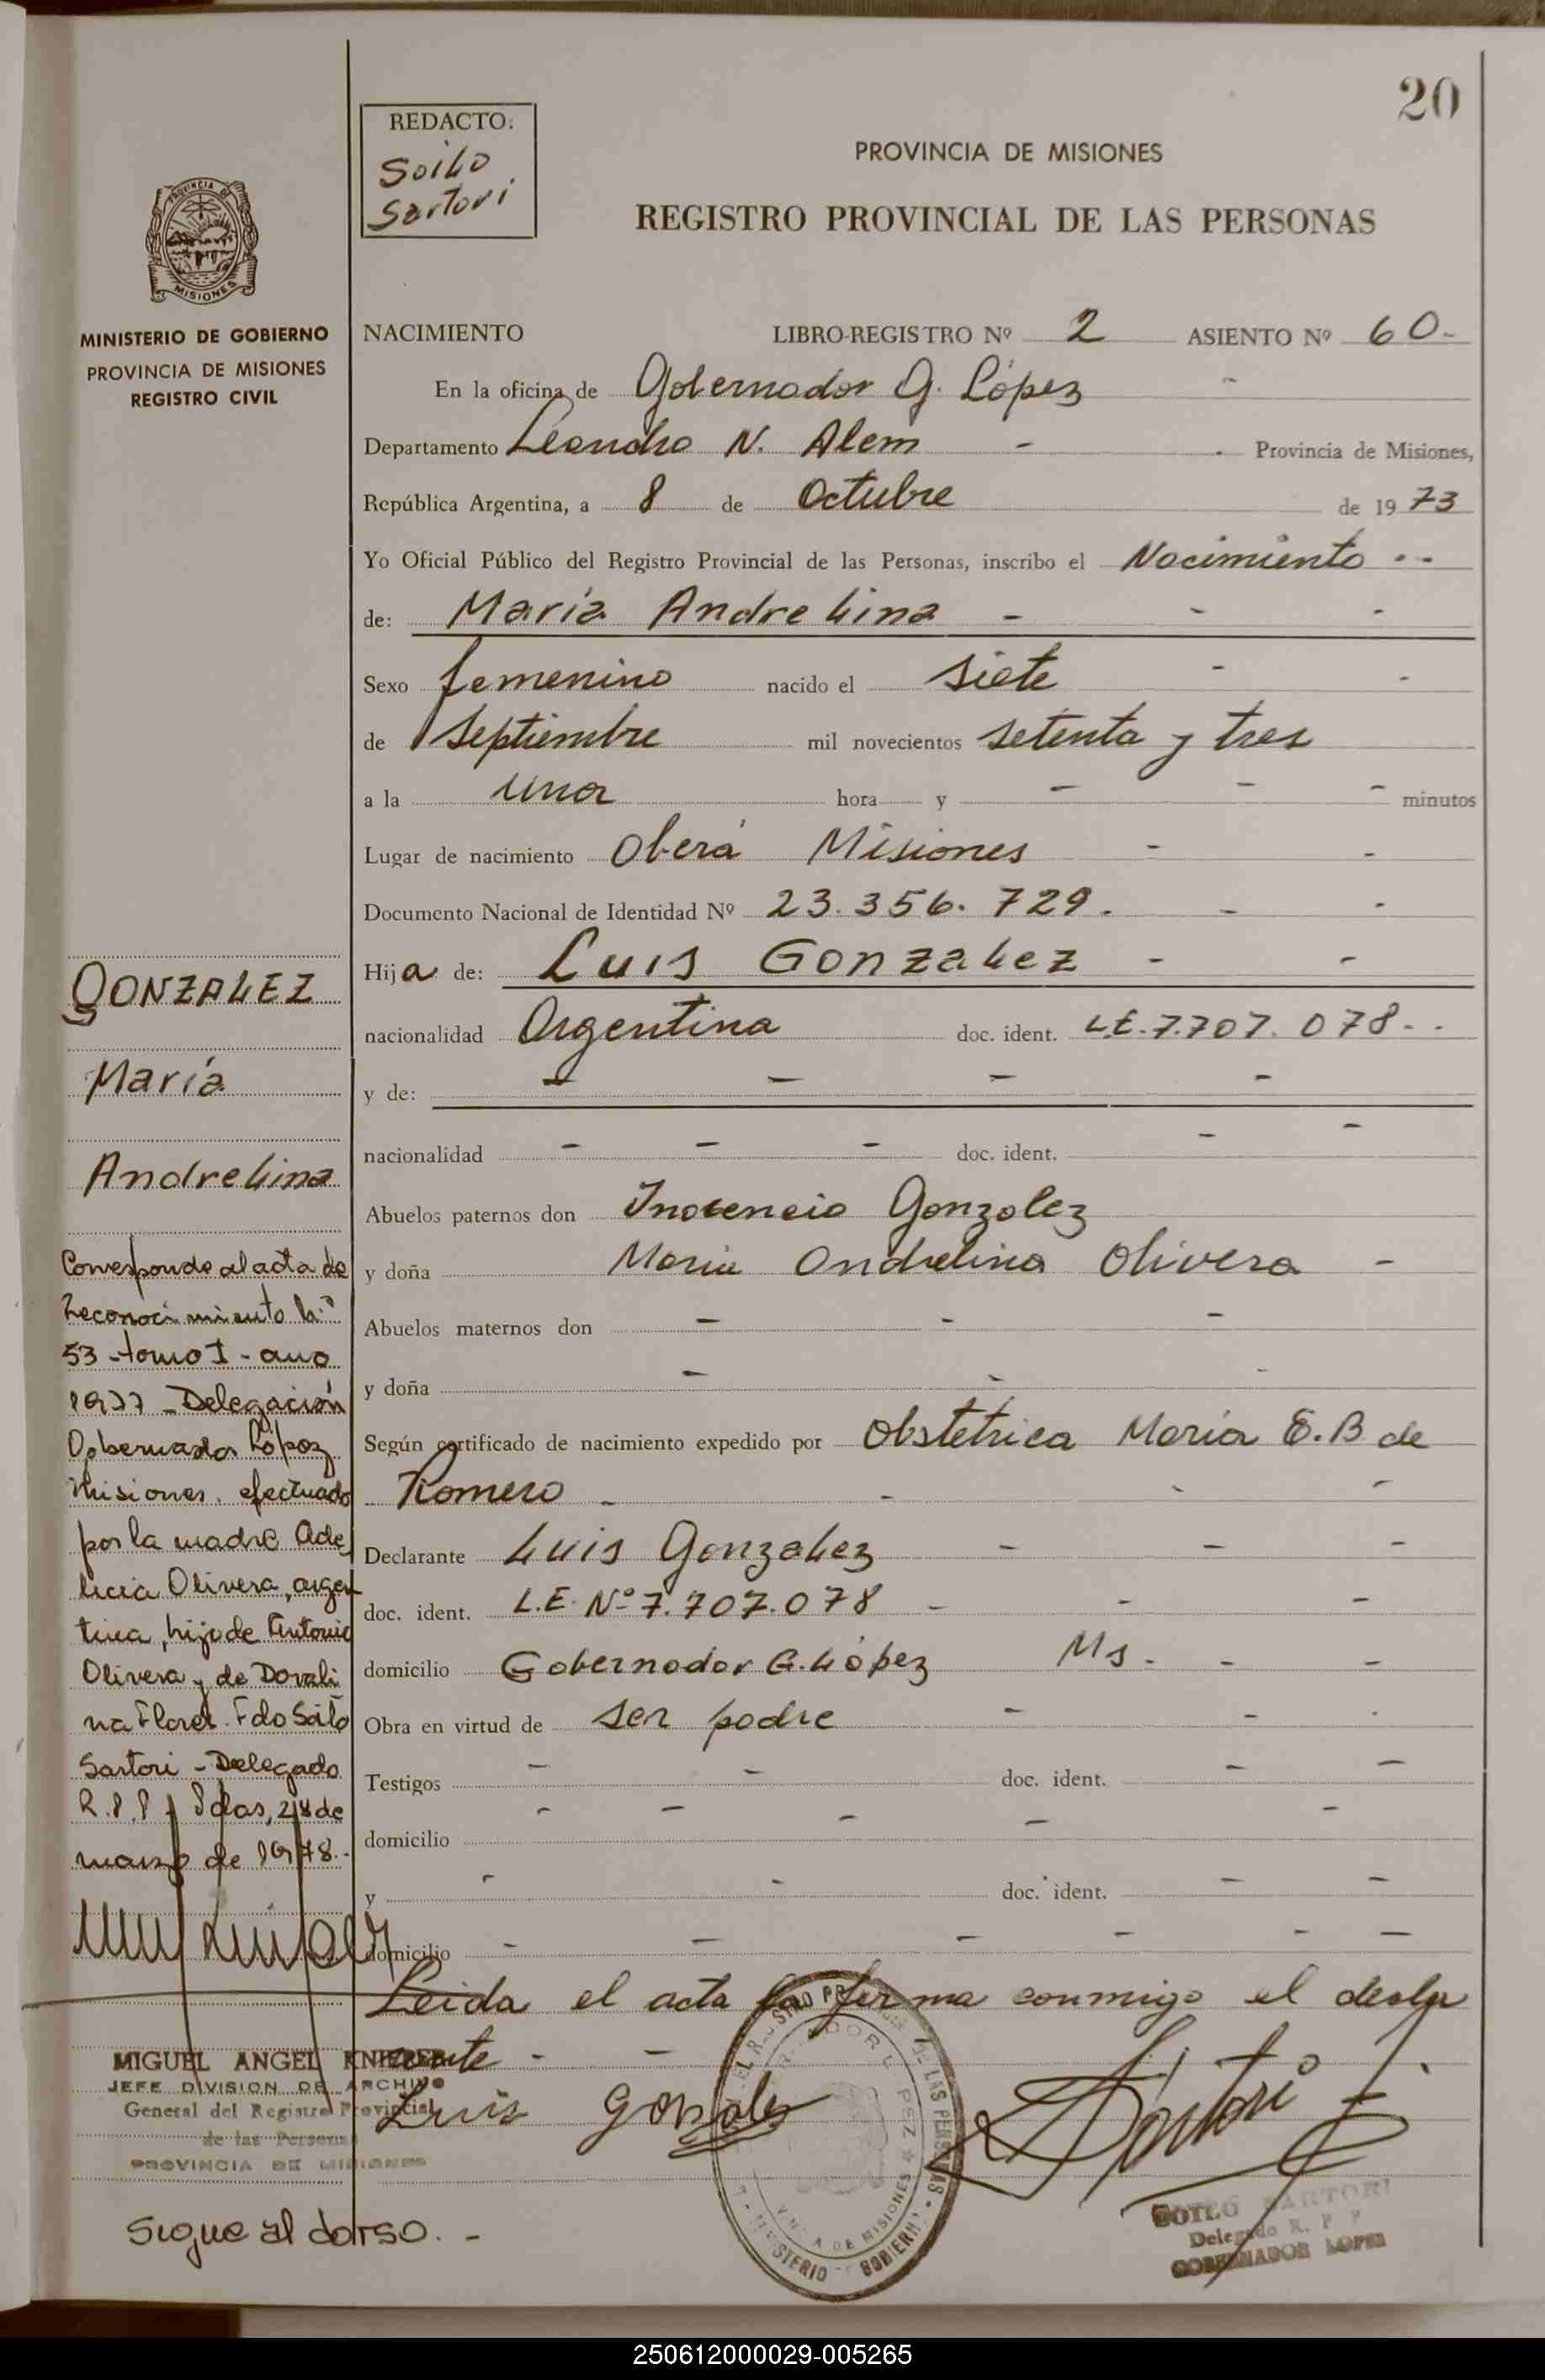 20
REDACTO:
Soilo
Sartori
PROVINCIA DE MISIONES
REGISTRO PROVINCIAL DE LAS PERSONAS
PROVINCIA DE
MISIONES
MINISTERIO DE GOBIERNO
PROVINCIA DE MISIONES
REGISTRO CIVIL
NACIMIENTO LIBRO-REGISTRO Nº 2 ASIENTO Nº 60-
En la oficina de Gobernador G. López -
Departamento Leandro N. Alem - . Provincia de Misiones,
República Argentina, a 8 de Octubre de 1973
Yo Oficial Público del Registro Provincial de las Personas, inscribo el Nacimiento --
de: María Andrelina - - -
Sexo femenino nacido el siete - -
de Septiembre mil novecientos setenta y tres
a la una hora y - - - minutos
Lugar de nacimiento Oberá Misiones - -
Documento Nacional de Identidad Nº 23.356.729. - -
Hija de: Luis Gonzalez - -
nacionalidad Argentina doc. ident. L.E.7.707.078--
y de: - - - -
nacionalidad - - - doc. ident. - -
Abuelos paternos don Inocencio Gonzalez
y doña Maria Andrelina Olivera -
Abuelos maternos don - - -
y doña - - -
Según certificado de nacimiento expedido por Obstétrica María E.B de
Romero - - - -
Declarante Luis Gonzalez - - -
doc. ident. L.E. Nº 7.707.078 - - -
domicilio Gobernador G. López Ms. - -
Obra en virtud de ser padre - - -
Testigos - - doc. ident. - -
domicilio - - - - -
y - - doc. ident. - -
domicilio - - - - - -
Leida el acta la firma conmigo el decla
rante - -
Luis Gonzalez
Sartori
SOILO SARTORI
Delegado R. P. P.
GOBERNADOR LOPEZ
GONZALEZ
María
Andrelina
Corresponde al acta de
reconocimiento nº
53 - tomo I - año
1977 - Delegación
Gobernador López
Misiones. efectuado
por la madre Ade
licia Olivera, argen
tina, hija de Antonio
Olivera y de Dorali
na Flores. Fdo Soilo
Sartori - Delegado
R.P.P. Pdas, 28 de
marzo de 1978.-
MIGUEL ANGEL
JEFE DIVISION DE ARCHIVO
General del Registro Provincial
de las Personas
PROVINCIA DE MISIONES
Sigue al dorso. -
250612000029-005265